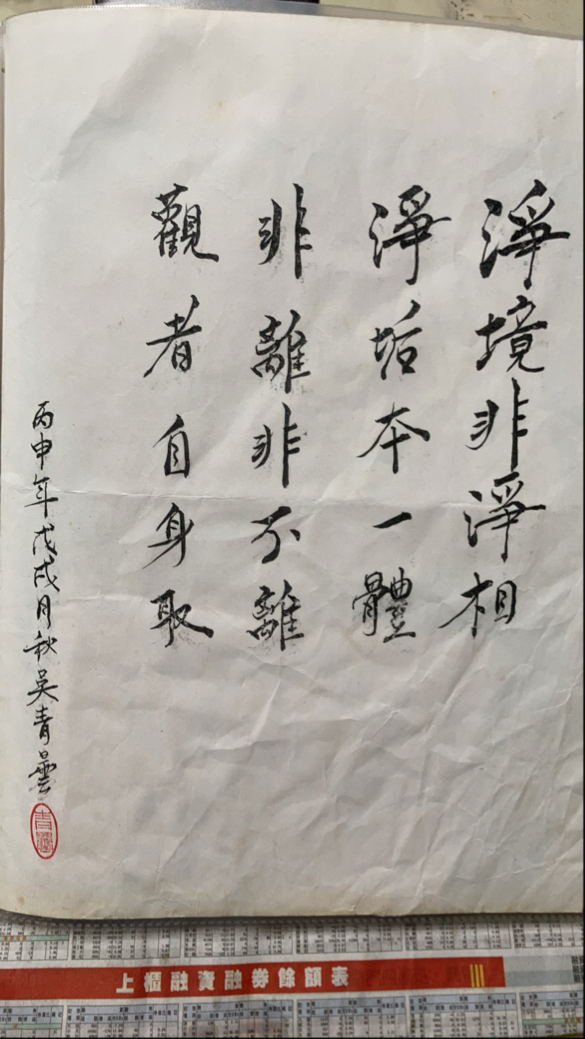 淨境非淨相
淨垢本一體
非離非不離
觀者自身取
丙申年戊戌月秋吳青曇
上櫃融資融券餘額表